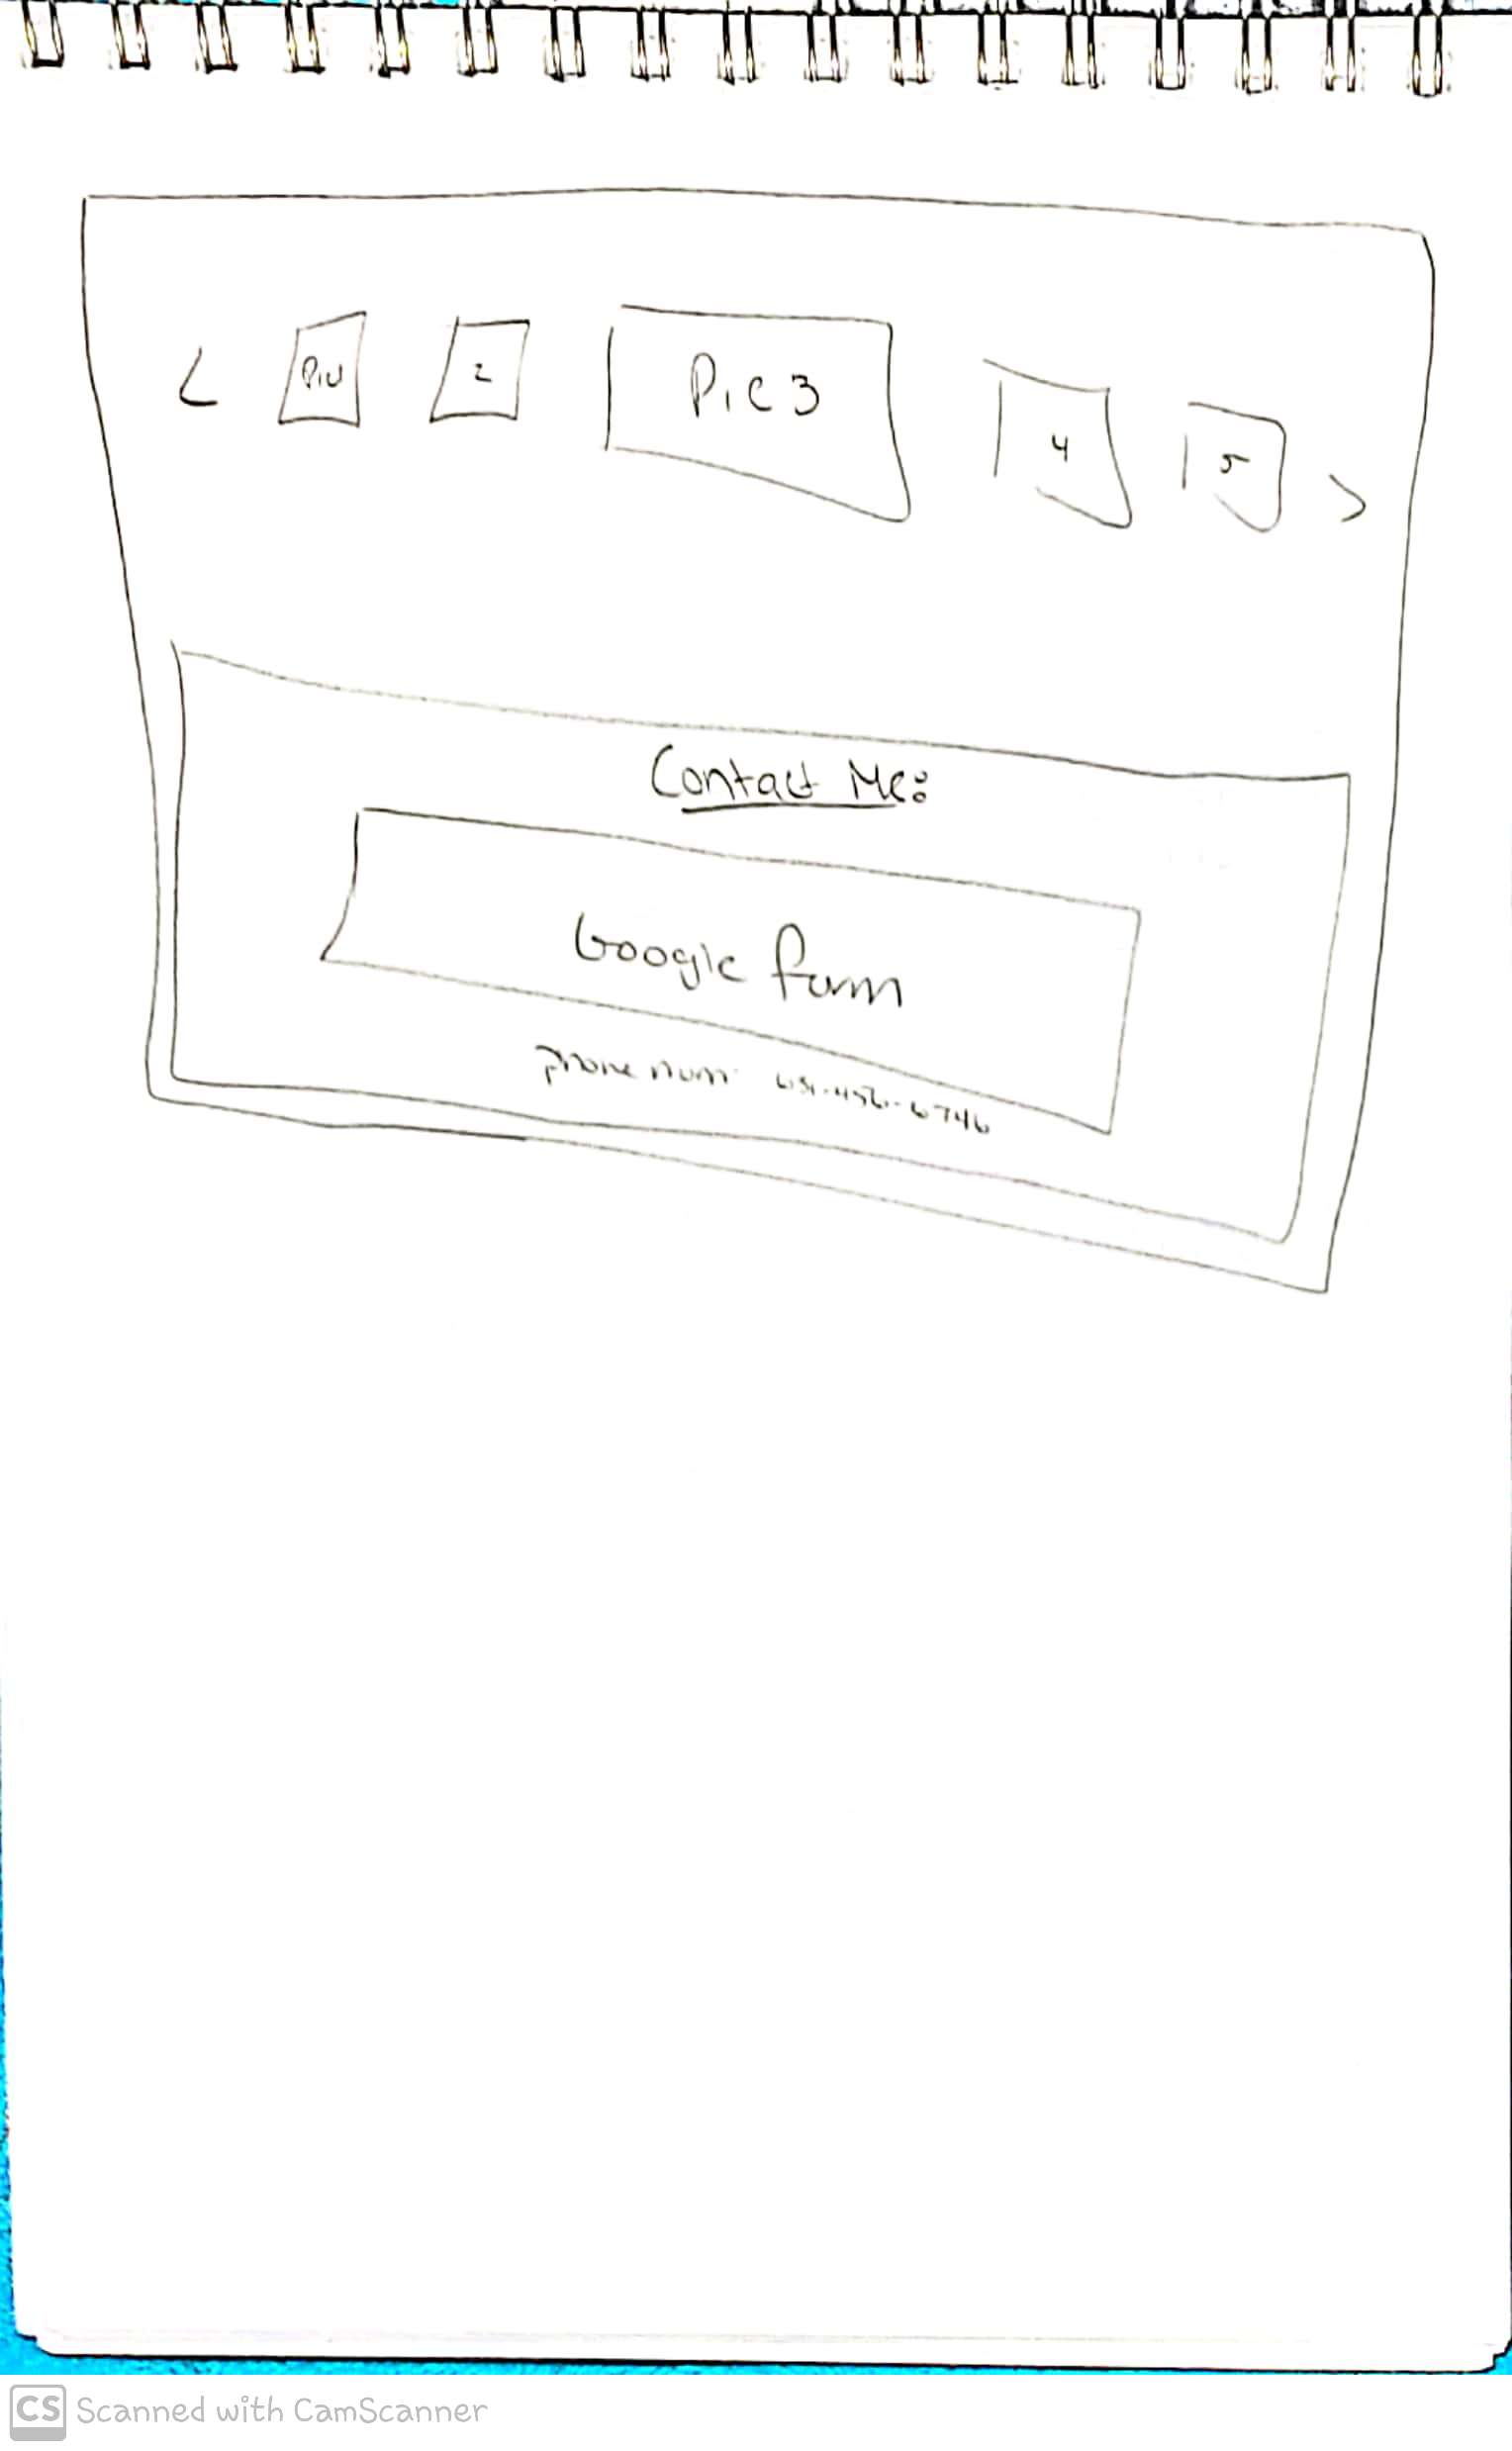 <
Pic1
2
Pic 3
4
5
>
Contact Me:
Google form
phone num: 651-456-6746
CS Scanned with CamScanner